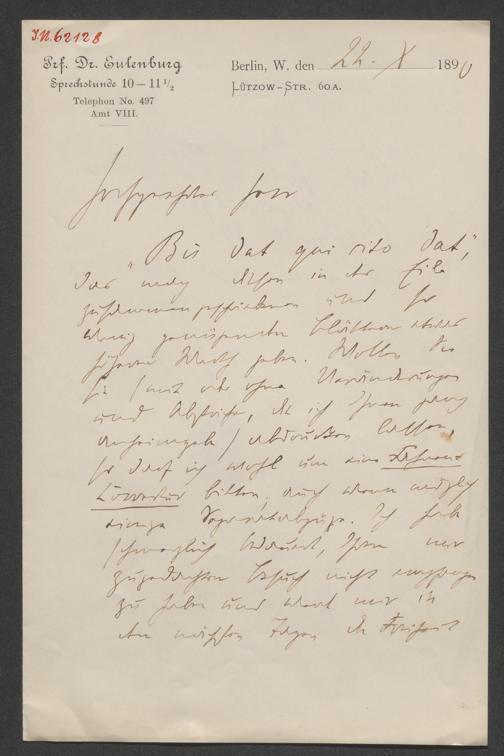 I.N. 62128
Prf. Dr. Eulenburg
Sprechstunde 10–11 1/2
Telephon No. 497
Amt VIII.
Berlin, W. den 22. X 1890
Lützow-Str. 60A.
Hochgeehrter Herr
„Bis dat qui cito dat“,
das mag diesen in der Eile
zusammengeschriebenen und so
wenig genügenden Blättern etwas
höheren Werth geben. Wollen Sie
sie (mit oder ohne Veränderungen
und Abstriche, die ich Ihnen ganz
anheimgebe) abdrucken lassen,
so darf ich wohl um eine Fahnen-
Correctur bitten, auch wenn möglich
einige Separatabzüge. Ich habe
schmerzlich bedauert, Ihren mir
zugedachten Besuch nicht empfangen
zu haben und werde mir in
den nächsten Tagen die Freiheit